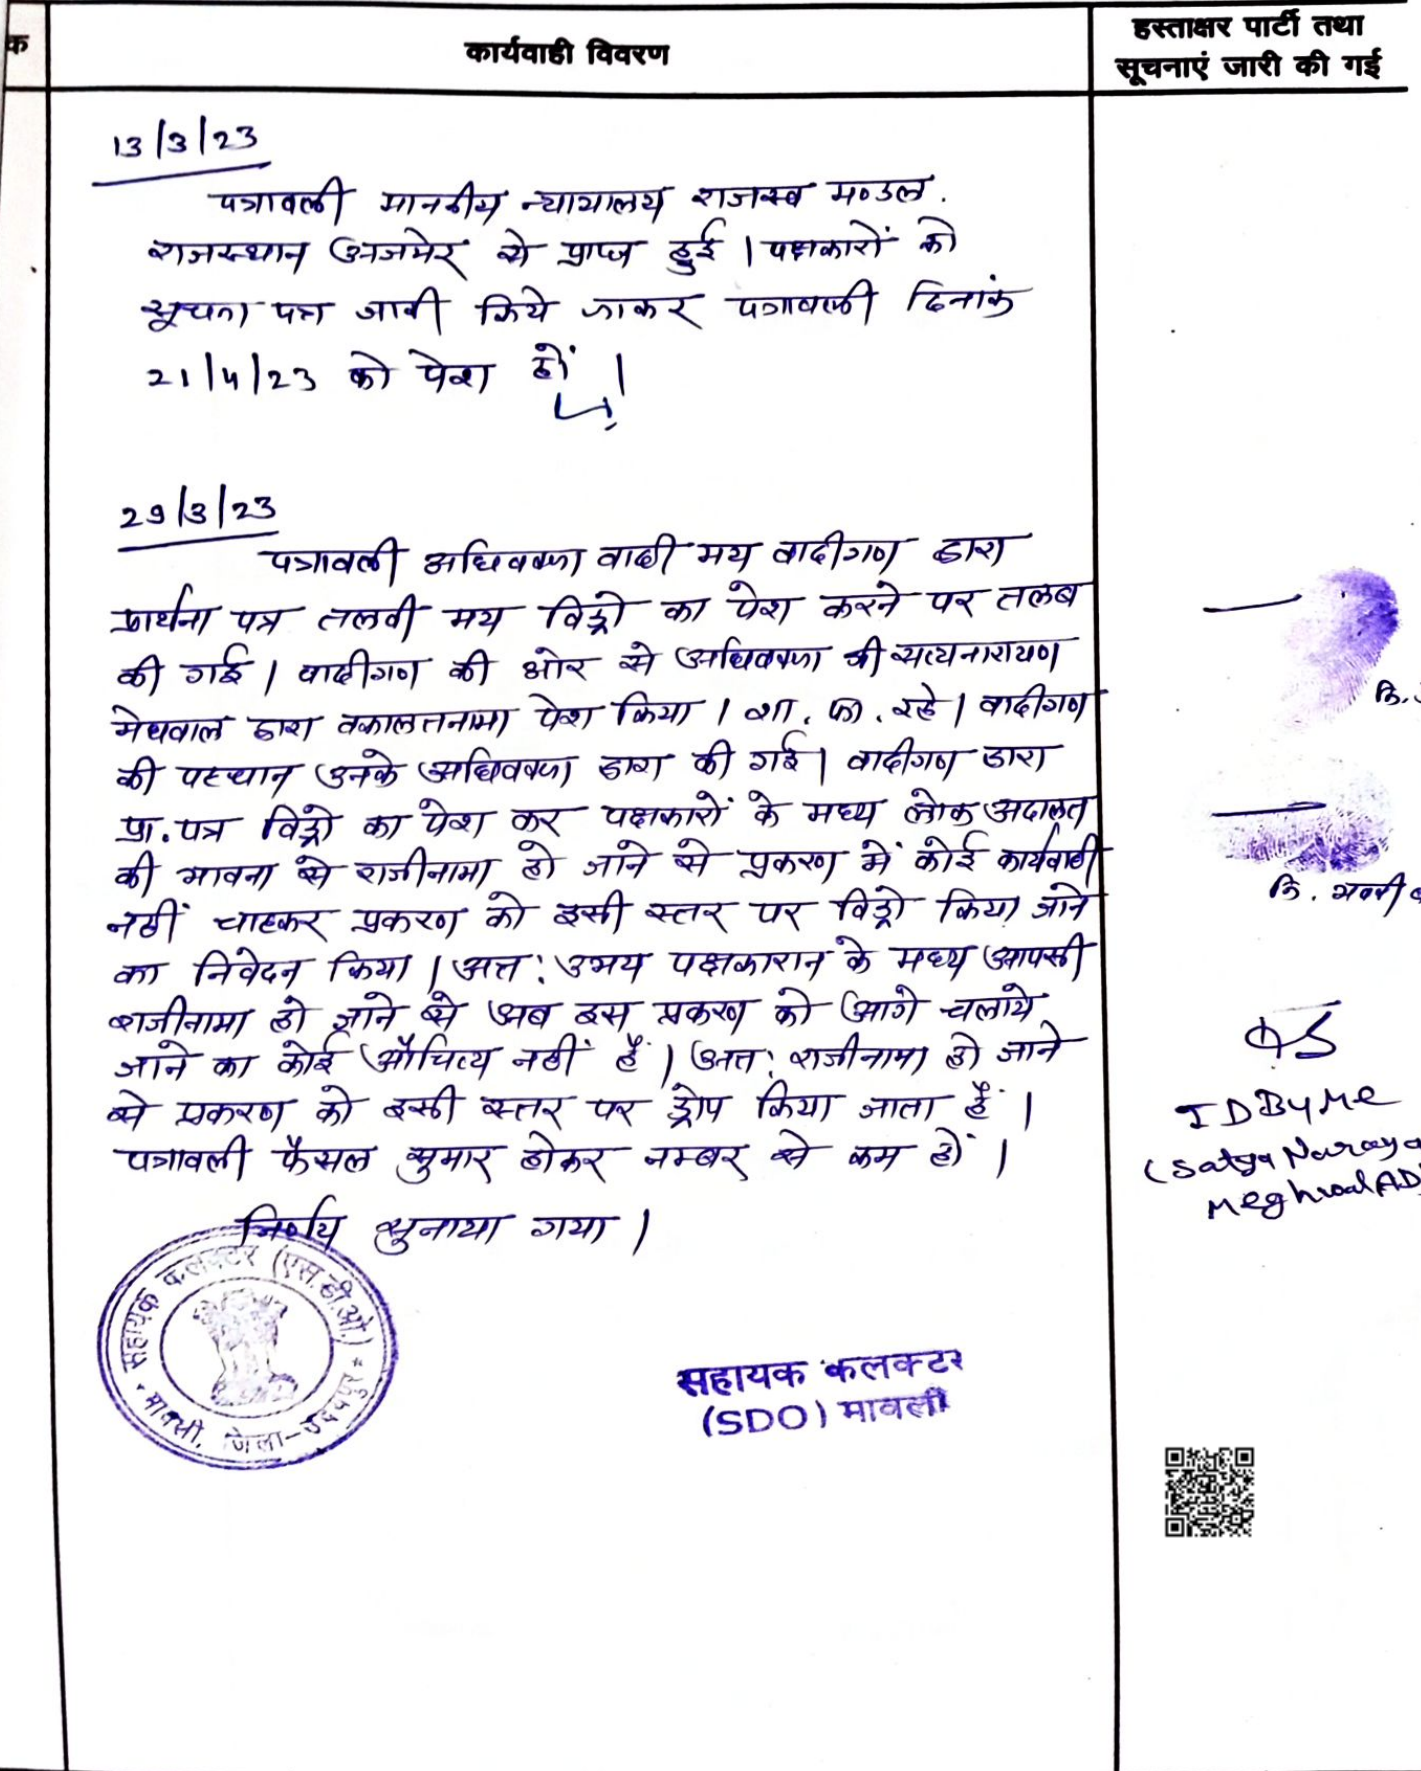 क
कार्यवाही विवरण
हस्ताक्षर पार्टी तथा
सूचनाएं जारी की गई
13/3/23
पत्रावली माननीय न्यायालय राजस्व मण्डल.
राजस्थान अजमेर से प्राप्त हुई । पक्षकारों को
सूचना पत्र जारी किये जाकर पत्रावली दिनांक
21/4/23 को पेश हों ।
29/3/23
पत्रावली अधिवक्ता वादी मय वादीगण द्वारा
प्रार्थना पत्र तलबी मय विड्रो का पेश करने पर तलब
की गई । वादीगण की ओर से अधिवक्ता श्री सत्यनारायण
मेघवाल द्वारा वकालतनामा पेश किया । शा. फा. रहे । वादीगण
की पहचान उनके अधिवक्ता द्वारा की गई । वादीगण द्वारा
प्रा. पत्र विड्रो का पेश कर पक्षकारों के मध्य लोक अदालत
की भावना से राजीनामा हो जाने से प्रकरण में कोई कार्यवाही
नहीं चाहकर प्रकरण को इसी स्तर पर विड्रो किया जाने
का निवेदन किया । अत: उभय पक्षकारान के मध्य आपसी
राजीनामा हो जाने से अब इस प्रकरण को आगे चलाये
जाने का कोई औचित्य नहीं है । अत: राजीनामा हो जाने
से प्रकरण को इसी स्तर पर ड्रोप किया जाता है ।
पत्रावली फैसल सुमार होकर नम्बर से कम हों ।
निर्णय सुनाया गया ।
नि.
नि.
IDByMe
(Satya Naraya
Meghwal AD
सहायक कलक्टर (एस.डी.ओ.)
मावली, जिला-उदयपुर
सहायक कलक्टर
(SDO) मावली